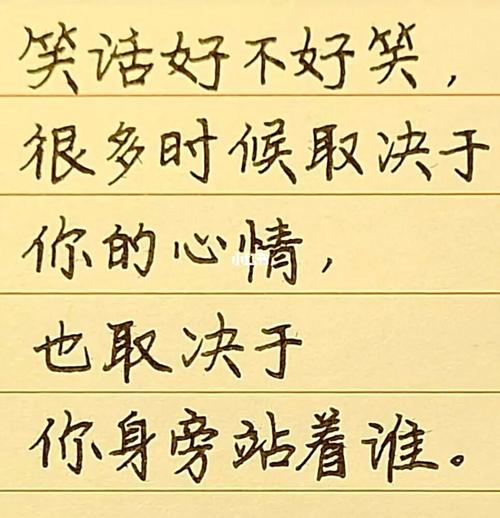 笑话好不好笑，
很多时候取决于
你的心情，
小红书
也取决于
你身旁站着谁。